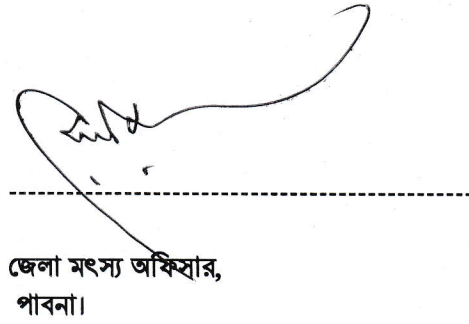 জেলা মৎস্য অফিসার,
পাবনা।